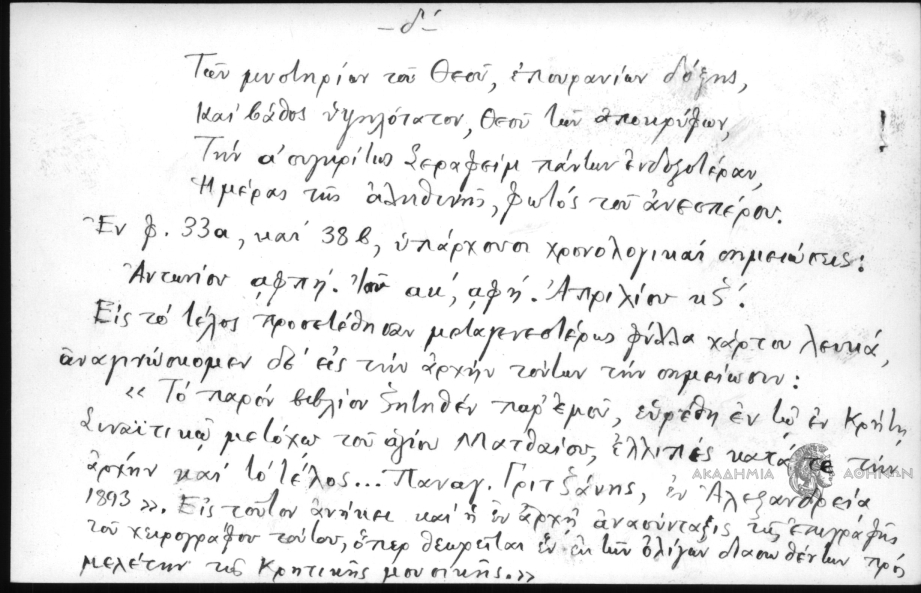 -δ'-
Τῶν μυστηρίων τοῦ Θεοῦ, ἐπουρανίων δόξης,
Καί βάθος ὑψηλότατον, Θεοῦ τῶν ἀποκρύφων,
Τήν ἀσυγκρίτως Σεραφείμ πάντων ἐνδοξοτέραν,
Ἡμέρας τῆς ἀληθινῆς, φωτός τοῦ ἀνεσπέρου.
Ἐν φ. 33α, καί 38β, ὑπάρχουσι χρονολογικαί σημειώσεις:
Ἀντωνίου αφπή. ακ', αφή. Ἀπριλίου κξ'.
Εἰς τό τέλος προσετέθησαν μεταγενεστέρως φύλλα χάρτου λευκά,
ἀναγινώσκομεν δέ εἰς τήν ἀρχήν τούτων τήν σημείωσιν:
«Τό παρόν βιβλίον ζητηθέν παρ' ἐμοῦ, εὑρέθη ἐν τῷ ἐν Κρήτῃ
Σιναϊτικῷ μετόχῳ τοῦ ἁγίου Ματθαίου, ἐλλιπές κατά τε τήν
ἀρχήν καί τό τέλος... Παναγ. Γριτζάνης, ἐν Ἀλεξανδρείᾳ
1893». Εἰς τοῦτον ἀνήκει καί ἡ ἐν ἀρχῇ ἀνασύνταξις τῆς ἐπιγραφῆς
τοῦ χειρογράφου τούτου, ὅπερ θεωρεῖται ἕν ἐκ τῶν ὀλίγων διασωθέντων πρός
μελέτην τῆς Κρητικῆς μουσικῆς.»
ΑΚΑΔΗΜΙΑ ΑΘΗΝΩΝ